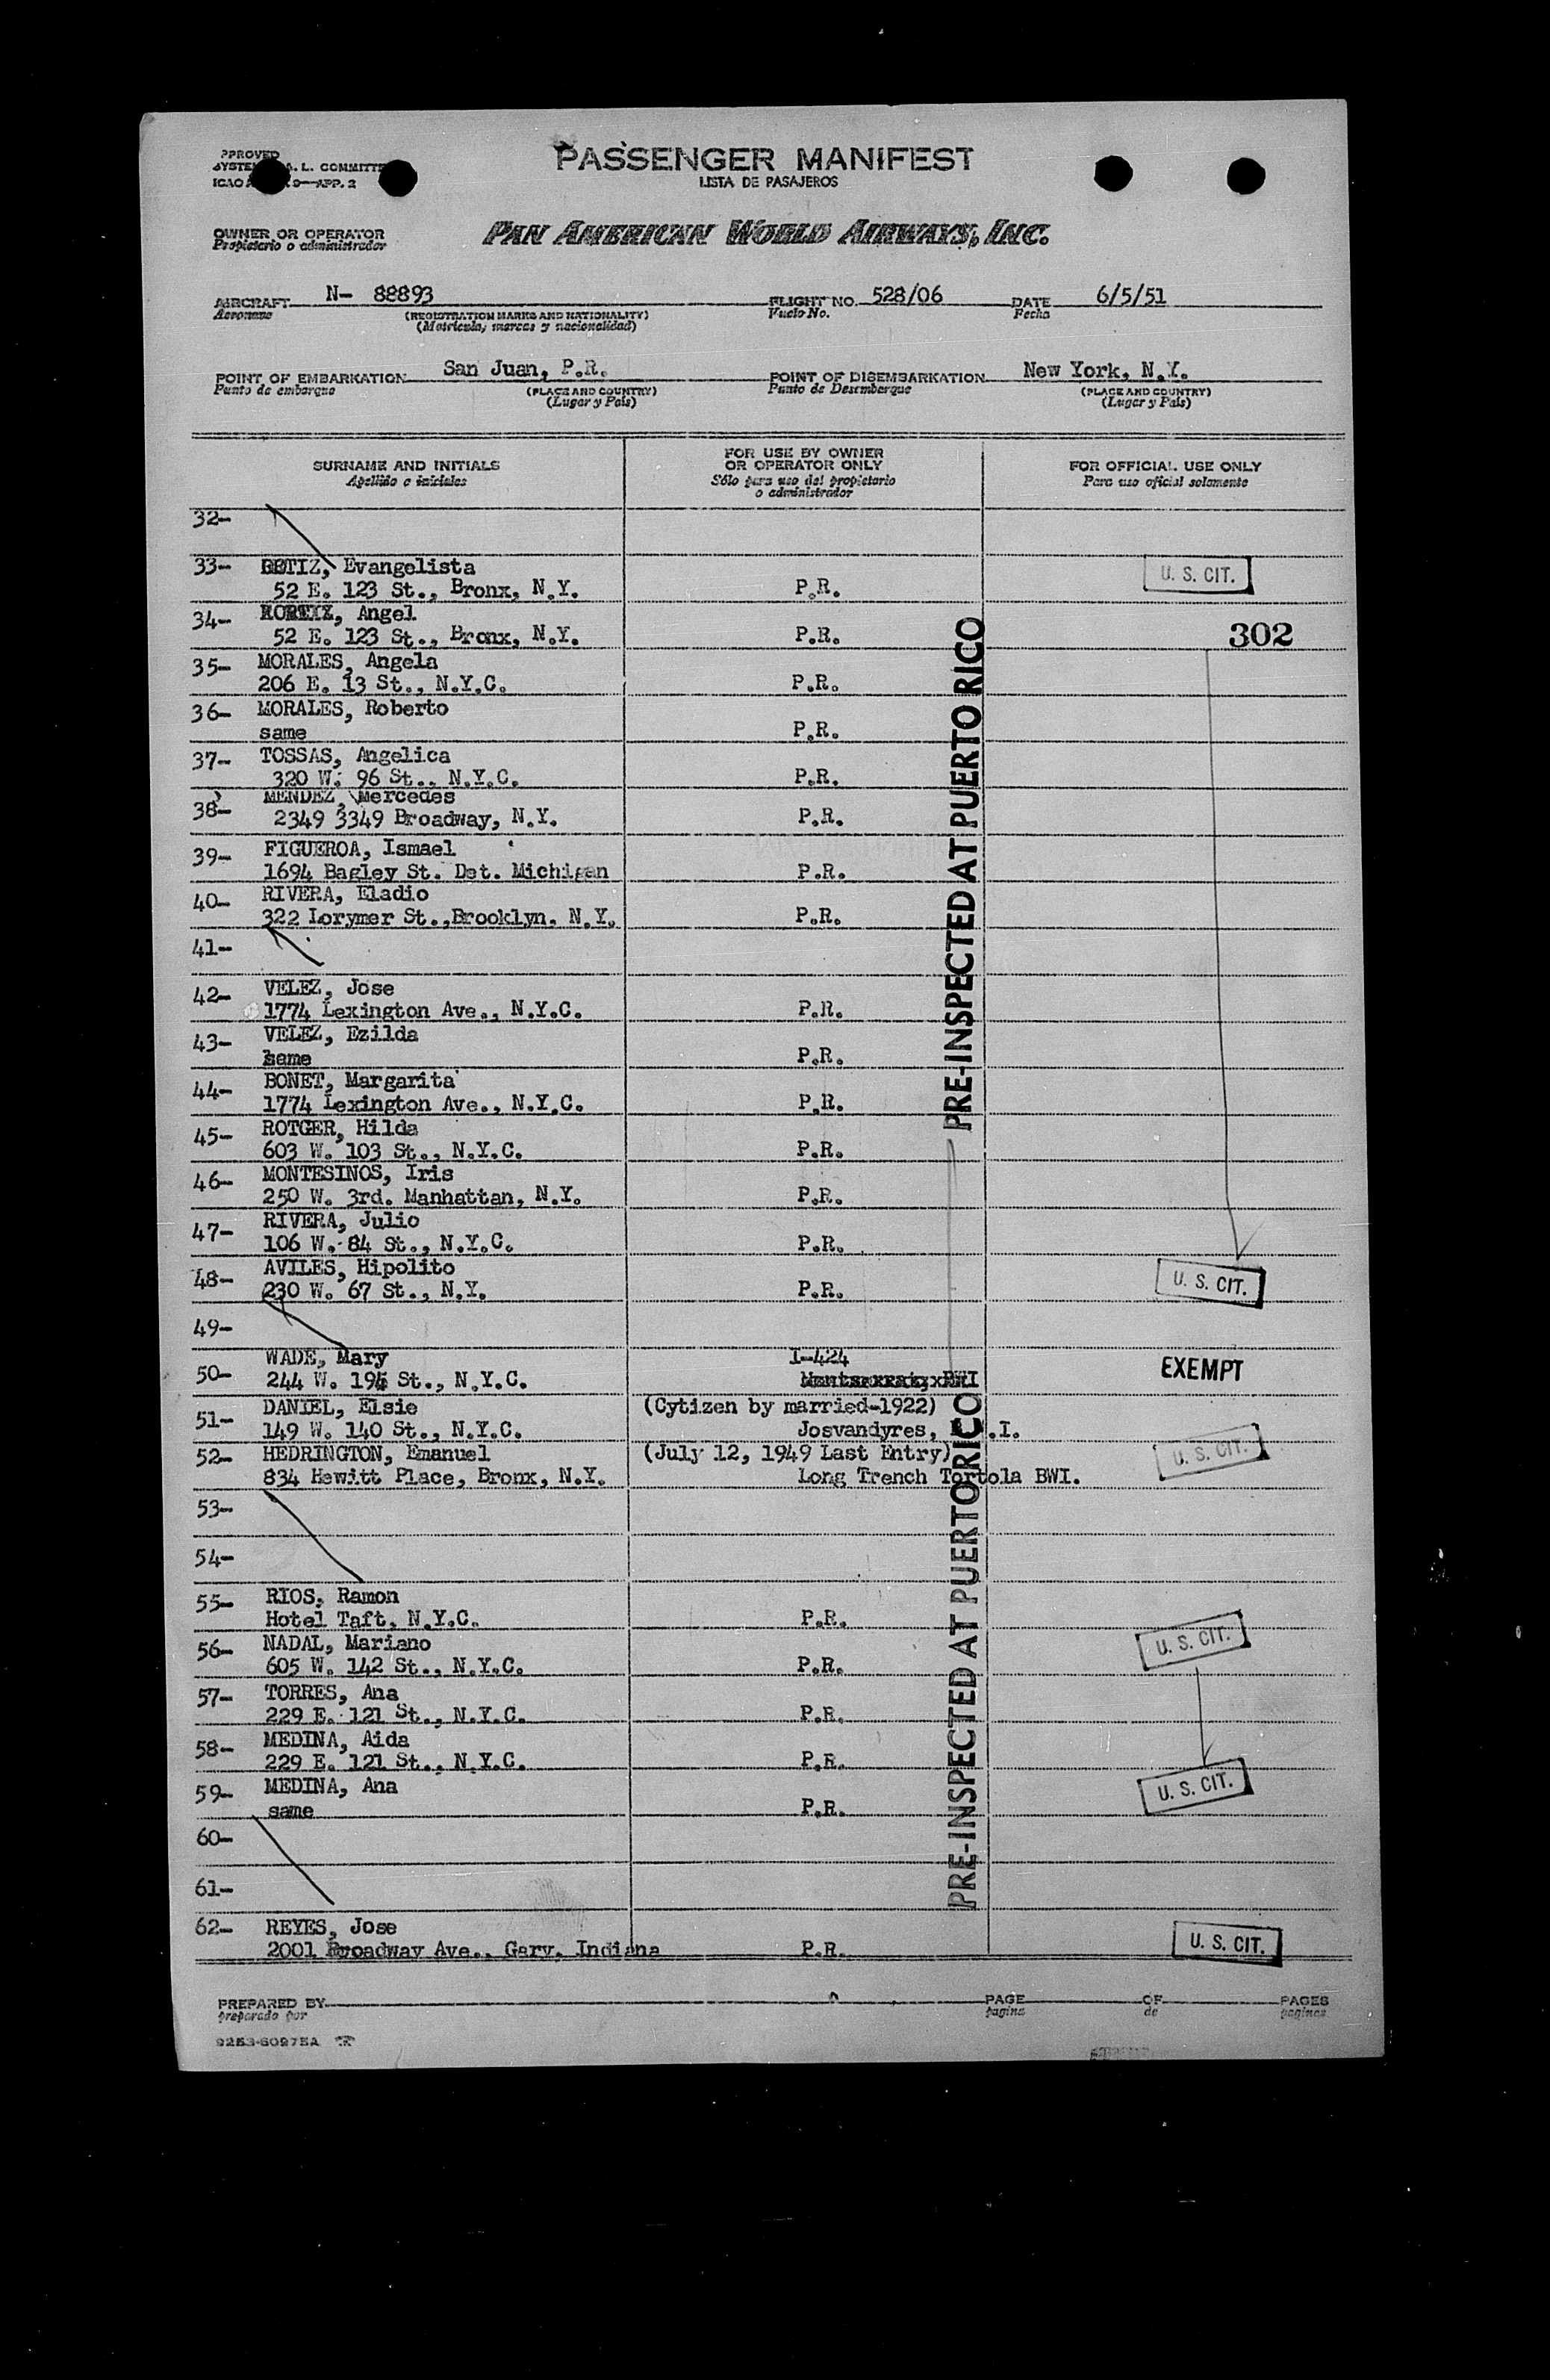 PASSENGER MANIFEST
LISTA DE PASAJEROS
PPROVED
L. COMMITTE
APP. 2
OWNER OR OPERATOR
Propietario o administrador
PAN AMERICAN WORLD AIRWAYS, INC.
AIRCRAFT N- 88893 FLIGHT NO. 528/06 DATE 6/5/51
Aeronave (REGISTRATION MARKS AND NATIONALITY) Vuelo No. Fecha
(Matricula, marcas y nacionalidad)
POINT OF EMBARKATION San Juan, P.R. POINT OF DISEMBARKATION New York, N.Y.
Punto de embarque (PLACE AND COUNTRY) Punto de Desembarque (PLACE AND COUNTRY)
(Lugar y País) (Lugar y País)
SURNAME AND INITIALS
Apellido e iniciales
FOR USE BY OWNER
OR OPERATOR ONLY
Sólo para uso del propietario
o administrador
FOR OFFICIAL USE ONLY
Para uso oficial solamente
32-
33- Evangelista
52 E. 123 St., Bronx, N.Y. P.R. U. S. CIT.
34- Angel
52 E. 123 St., Bronx, N.Y. P.R. 302
35- MORALES, Angela
206 E. 13 St., N.Y.C. P.R.
36- MORALES, Roberto
same P.R.
37- TOSSAS, Angelica
320 W. 96 St., N.Y.C. P.R.
38- MENDEZ, Mercedes
2349 3349 Broadway, N.Y. P.R.
39- FIGUEROA, Ismael
1694 Bagley St. Det. Michigan P.R.
40- RIVERA, Eladio
322 Lorymer St.,Brooklyn. N.Y. P.R.
41-
42- VELEZ, Jose
1774 Lexington Ave., N.Y.C. P.R.
43- VELEZ, Ezilda
same P.R.
44- BONET, Margarita
1774 Lexington Ave., N.Y.C. P.R.
45- ROTGER, Hilda
603 W. 103 St., N.Y.C. P.R.
46- MONTESINOS, Iris
250 W. 3rd. Manhattan, N.Y. P.R.
47- RIVERA, Julio
106 W. 84 St., N.Y.C. P.R.
48- AVILES, Hipolito
230 W. 67 St., N.Y. P.R. U. S. CIT.
49-
50- WADE, Mary I-424 EXEMPT
244 W. St., N.Y.C.
51- DANIEL, Elsie (Cytizen by married-1922)
149 W. 140 St., N.Y.C. Josvandyres, .I.
52- HEDRINGTON, Emanuel (July 12, 1949 Last Entry) U. S. CIT.
834 Hewitt Place, Bronx, N.Y. Long Trench Tortola BWI.
53-
54-
55- RIOS, Ramon
Hotel Taft, N.Y.C. P.R. U. S. CIT.
56- NADAL, Mariano
605 W. 142 St., N.Y.C. P.R.
57- TORRES, Ana
229 E. 121 St., N.Y.C. P.R.
58- MEDINA, Aida
229 E. 121 St., N.Y.C. P.R.
59- MEDINA, Ana
same P.R. U. S. CIT.
60-
61-
62- REYES, Jose
2001 Broadway Ave., Gary, Indiana P.R. U. S. CIT.
PRE-INSPECTED AT PUERTO RICO
PRE-INSPECTED AT PUERTO RICO
PREPARED BY PAGE OF PAGES
preparado por pagina de paginas
9253-60975A